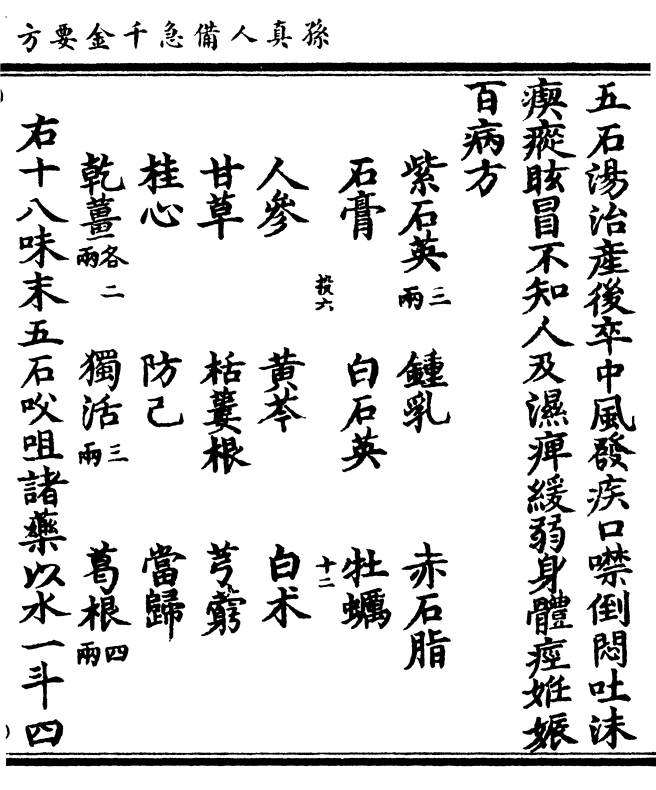 孫真人備急千金要方
五石湯治產後卒中風發疾口噤倒悶吐沫
瘈瘲眩冒不知人及濕痺緩弱身體痙妊娠
百病方
紫石英三兩 鍾乳 赤石脂
石膏 白石英 牡蠣
投六 十二
人參 黃芩 白术
甘草 栝蔞根 芎藭
桂心 防己 當歸
乾薑各二兩 獨活三兩 葛根四兩
右十八味末五石㕮咀諸藥以水一斗四